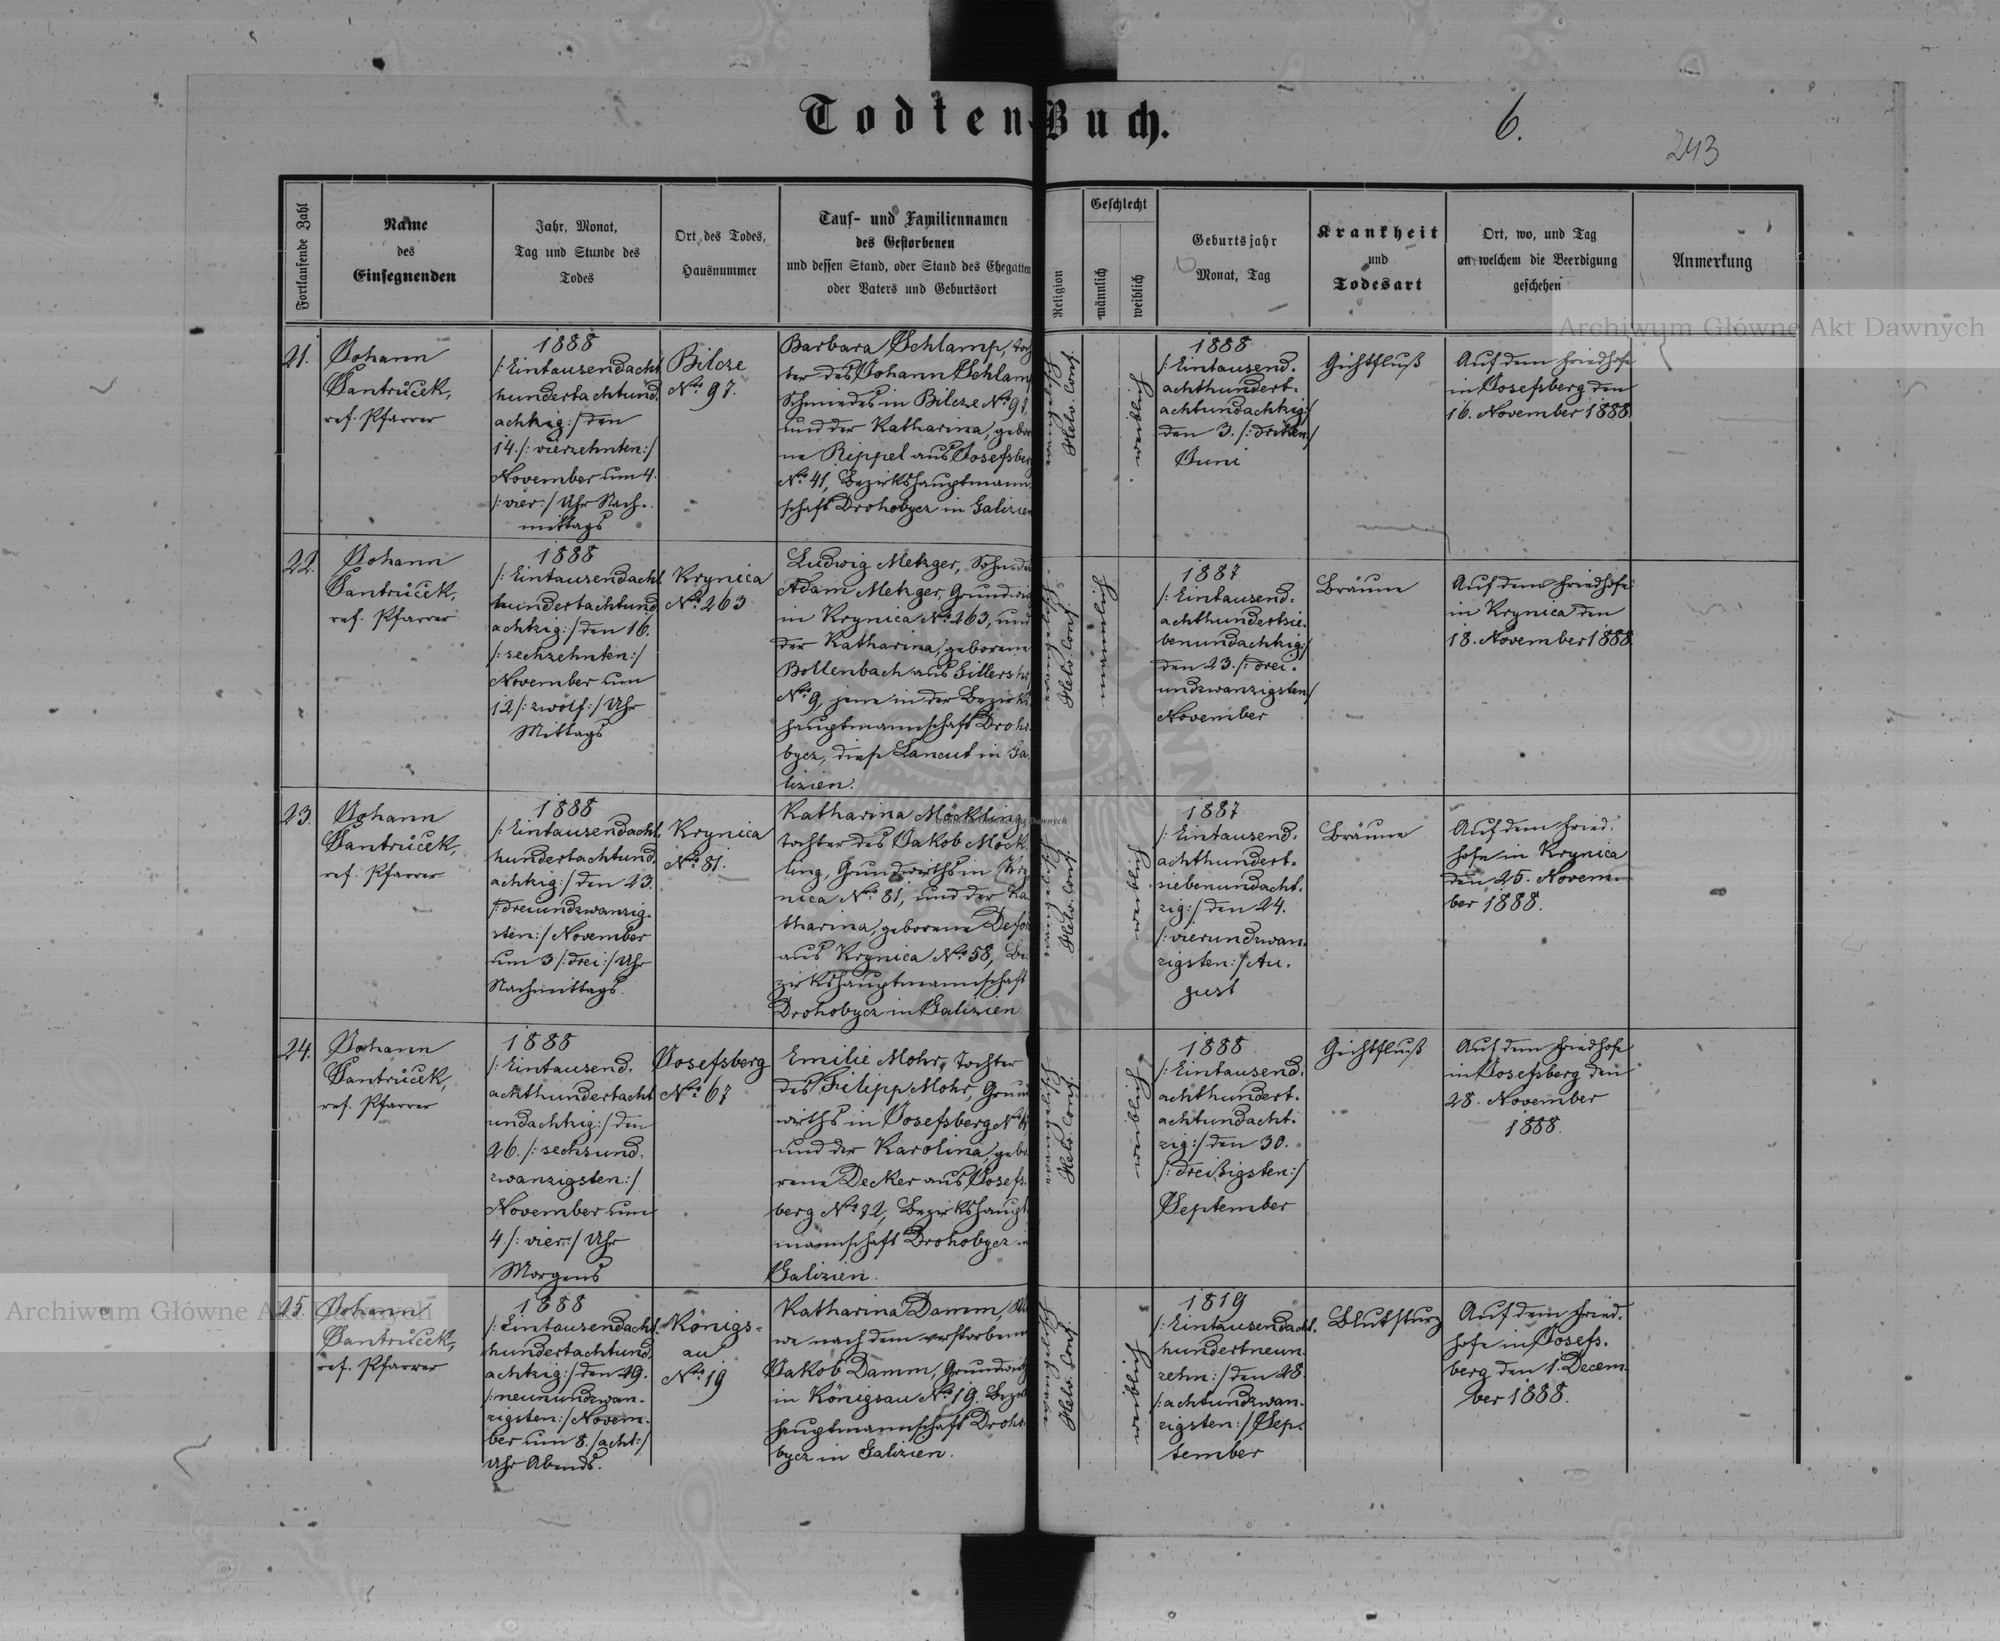 Todten-Buch.
6.
243
Fortlaufende Zahl
Name
des
Einsegnenden
Jahr, Monat,
Tag und Stunde des
Todes
Ort des Todes,
Hausnummer
Tauf- und Familiennamen
des Gestorbenen
und dessen Stand, oder Stand des Ehegatten
oder Vaters und Geburtsort
Religion
Geschlecht
männlich
weiblich
Geburtsjahr
Monat, Tag
Krankheit
und
Todesart
Ort, wo, und Tag
an welchem die Beerdigung
geschehen
Anmerkung
21.
Johann
Jantrůcek,
ref. Pfarrer
1888
/: Eintausendacht
hundertachtund
achtzig :/ den
14. /: vierzehnten :/
November um 4.
/: vier :/ Uhr Nach-
mittags
Bilcze
No. 97.
Barbara Schlamp, Toch
ter des Johann Schlam
Schmiedes in Bilcze No. 97,
und der Katharina, gebor
ne Rippel aus Josefsberg
No. 41, Bezirkshauptmann-
schaft Drohobycz in Galizien
evangelisch
Helv. Conf.
weiblich
1888
/: Eintausend-
achthundert-
achtundachtzig :/
den 3. /: dritten :/
Juni
Gichtfluß
Auf dem Friedhofe
in Josefsberg den
16. November 1888.
22.
Johann
Jantrůcek,
ref. Pfarrer
1888
/: Eintausendacht
hundertachtund
achtzig :/ den 16.
/: sechzehnten :/
November um
12 /: zwölf :/ Uhr
Mittags
Krynica
No. 263
Ludwig Metzger, Sohn des
Adam Metzger, Grundwir
in Krynica No. 263, und
der Katharina, geborene
Bollenbach aus Gillersh
No. 9, jene in der Bezirks
hauptmannschaft Droho
bycz, diese Lancut in Ga-
lizien.
evangelisch
Helv. Conf.
männlich
1887
/: Eintausend-
achthundertsie-
benundachtzig :/
den 23. /: drei-
undzwanzigsten :/
November
Bräune
Auf dem Friedhofe
in Krynica den
18. November 1888.
23.
Johann
Jantrůcek,
ref. Pfarrer
1888
/: Eintausendacht
hundertachtund
achtzig :/ den 23.
/: dreiundzwanzig-
sten :/ November
um 3 /: drei :/ Uhr
Nachmittags.
Krynica
No. 81.
Katharina Möckling,
Tochter des Jakob Möck
ling, Grundwirths in Kry
nica No. 81, und der Ka
tharina, geborene
aus Krynica No. 58, Be-
zirkshauptmannschaft
Drohobycz in Galizien
evangelisch
Helv. Conf.
weiblich
1887
/: Eintausend-
achthundert-
siebenundacht-
zig :/ den 24.
/: vierundzwan-
zigsten :/ Au-
gust
Bräune
Auf dem Fried-
hofe in Krynica
den 25. Novem-
ber 1888.
24.
Johann
Jantrůcek,
ref. Pfarrer
1888
/: Eintausend-
achthundertacht
undachtzig :/ den
26. /: sechsund-
zwanzigsten :/
November um
4. /: vier :/ Uhr
Morgens
Josefsberg
No. 67
Emilie Mohr, Tochter
des Filipp Mohr, Grund
wirths in Josefsberg No.
und der Karolina, gebo
rene Decker aus Josefs-
berg No. 72, Bezirkshaupt
mannschaft Drohobycz in
Galizien.
evangelisch
Helv. Conf.
weiblich
1888
/: Eintausend-
achthundert-
achtundacht-
zig :/ den 30.
/: dreißigsten :/
September
Gichtfluß
Auf dem Friedhofe
in Josefsberg den
28. November
1888.
25.
Johann
Jantrůcek,
ref. Pfarrer
1888
/: Eintausendacht-
hundertachtund
achtzig :/ den 29.
/: neunundzwan-
zigsten :/ Novem-
ber um 8. /: acht :/
Uhr Abends.
Königs-
au
No. 19
Katharina Damm, Wit
we nach dem verstorbenen
Jakob Damm, Grundwirth
in Königsau No. 19. Bezirks
hauptmannschaft Droho-
bycz in Galizien.
evangelisch
Helv. Conf.
weiblich
1819
/: Eintausendacht-
hundertneun-
zehn :/ den 28.
/: achtundzwan-
zigsten :/ Sep-
tember
Blutsturz
Auf dem Fried-
hofe in Josefs-
berg den 1. Decem-
ber 1888.
Archiwum Główne Akt Dawnych
Archiwum Główne Akt Dawnych